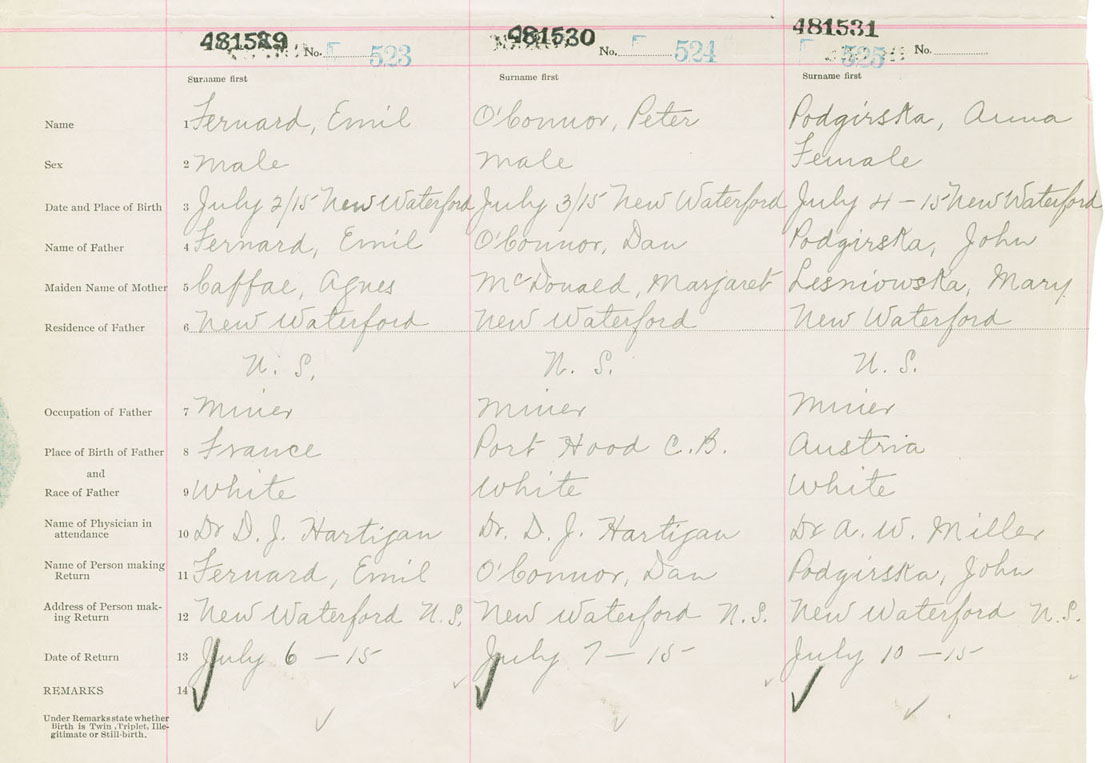 481529 481530 481531
No. F 523 No. F 524 F 525 No.
Surname first Surname first Surname first
Name 1 Fernard, Emil O'Connor, Peter Podgirska, Anna
Sex 2 male male Female
Date and Place of Birth 3 July 2/15 New Waterford July 3/15 New Waterford July 4 - 15 New Waterford
Name of Father 4 Fernard, Emil O'Connor, Dan Podgirska, John
Maiden Name of Mother 5 Caffae, Agnes McDonald, Margaret Lesniowska, Mary
Residence of Father 6 New Waterford New Waterford New Waterford
N. S. N. S. N. S.
Occupation of Father 7 Miner Miner Miner
Place of Birth of Father 8 France Port Hood C.B. Austria
and
Race of Father 9 White White White
Name of Physician in
attendance 10 Dr D. J. Hartigan Dr. D. J. Hartigan Dr A. W. Miller
Name of Person making
Return 11 Fernard, Emil O'Connor, Dan Podgirska, John
Address of Person mak-
ing Return 12 New Waterford N.S. New Waterford N.S. New Waterford N.S.
Date of Return 13 July 6 - 15 July 7 - 15 July 10 - 15
REMARKS 14
Under Remarks state whether
Birth is Twin, Triplet, Ille-
gitimate or Still-birth.